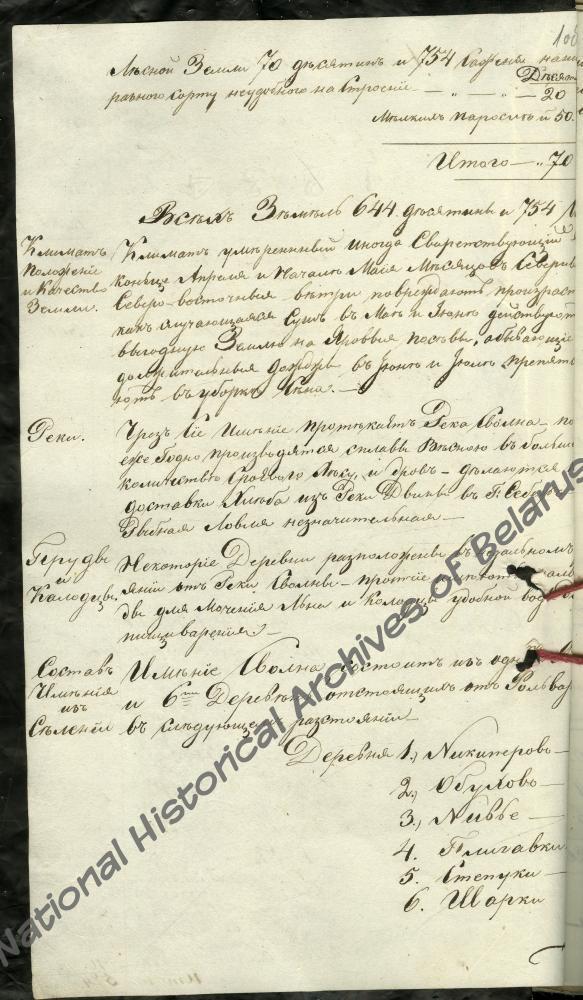 106
Лѣсной Земли 70 десятинъ и 754 Сажени
Десят
разного сорту неудобного на Строеніе — „ — „ — 20
Мѣлкихъ паростей 50.
Итого — „ 70
Всѣхъ Земѣль 644. десятины и 754
Климатъ
Положеніе
и Качество
Земли.
Климатъ умѣренный иногда Свирепствующій
концѣ Апреля и Началѣ Маія Мѣсяцовъ Северны
Северо-восточныя вѣтри повреждаютъ произраст
какъ случающаяся Сушъ въ Маѣ и Іюнѣ действуетъ
выгодную Землю на Яровыя посѣвы, а бывающіе
должительныя дожди въ Іюнѣ и Іюлѣ препят
ютъ въ уборкѣ Сѣна. —
Реки.
Чрезъ Сіе Имѣніе протѣкаетъ Река Сволна — по
еже Годно производятся сплавы Весною въ больш
количествѣ Лѣсу, и дровъ — делаются
доставки Хлѣба изъ Реки Двины въ Г. Себе
Рыбная Ловля незначительная —
и
Калодцы,
Некоторіе Деревни разположены въ
яніи отъ Реки Сволны — протчіе
для Мочения Лѣна и Колодцы удобной вод
пищиваренія —
Составъ
Имѣнія
изъ
Сѣленій
Имѣніе Сволна состоитъ изъ одн
и 6ти Деревень отстоящихъ отъ Фольвар
въ слѣдующемъ разстояніи —
Деревня 1., Никитерово —
2., Обухово —
3., Нивье —
4. Плигавки
5. Степуки —
6. Шарки
National Historical Archives of Belarus